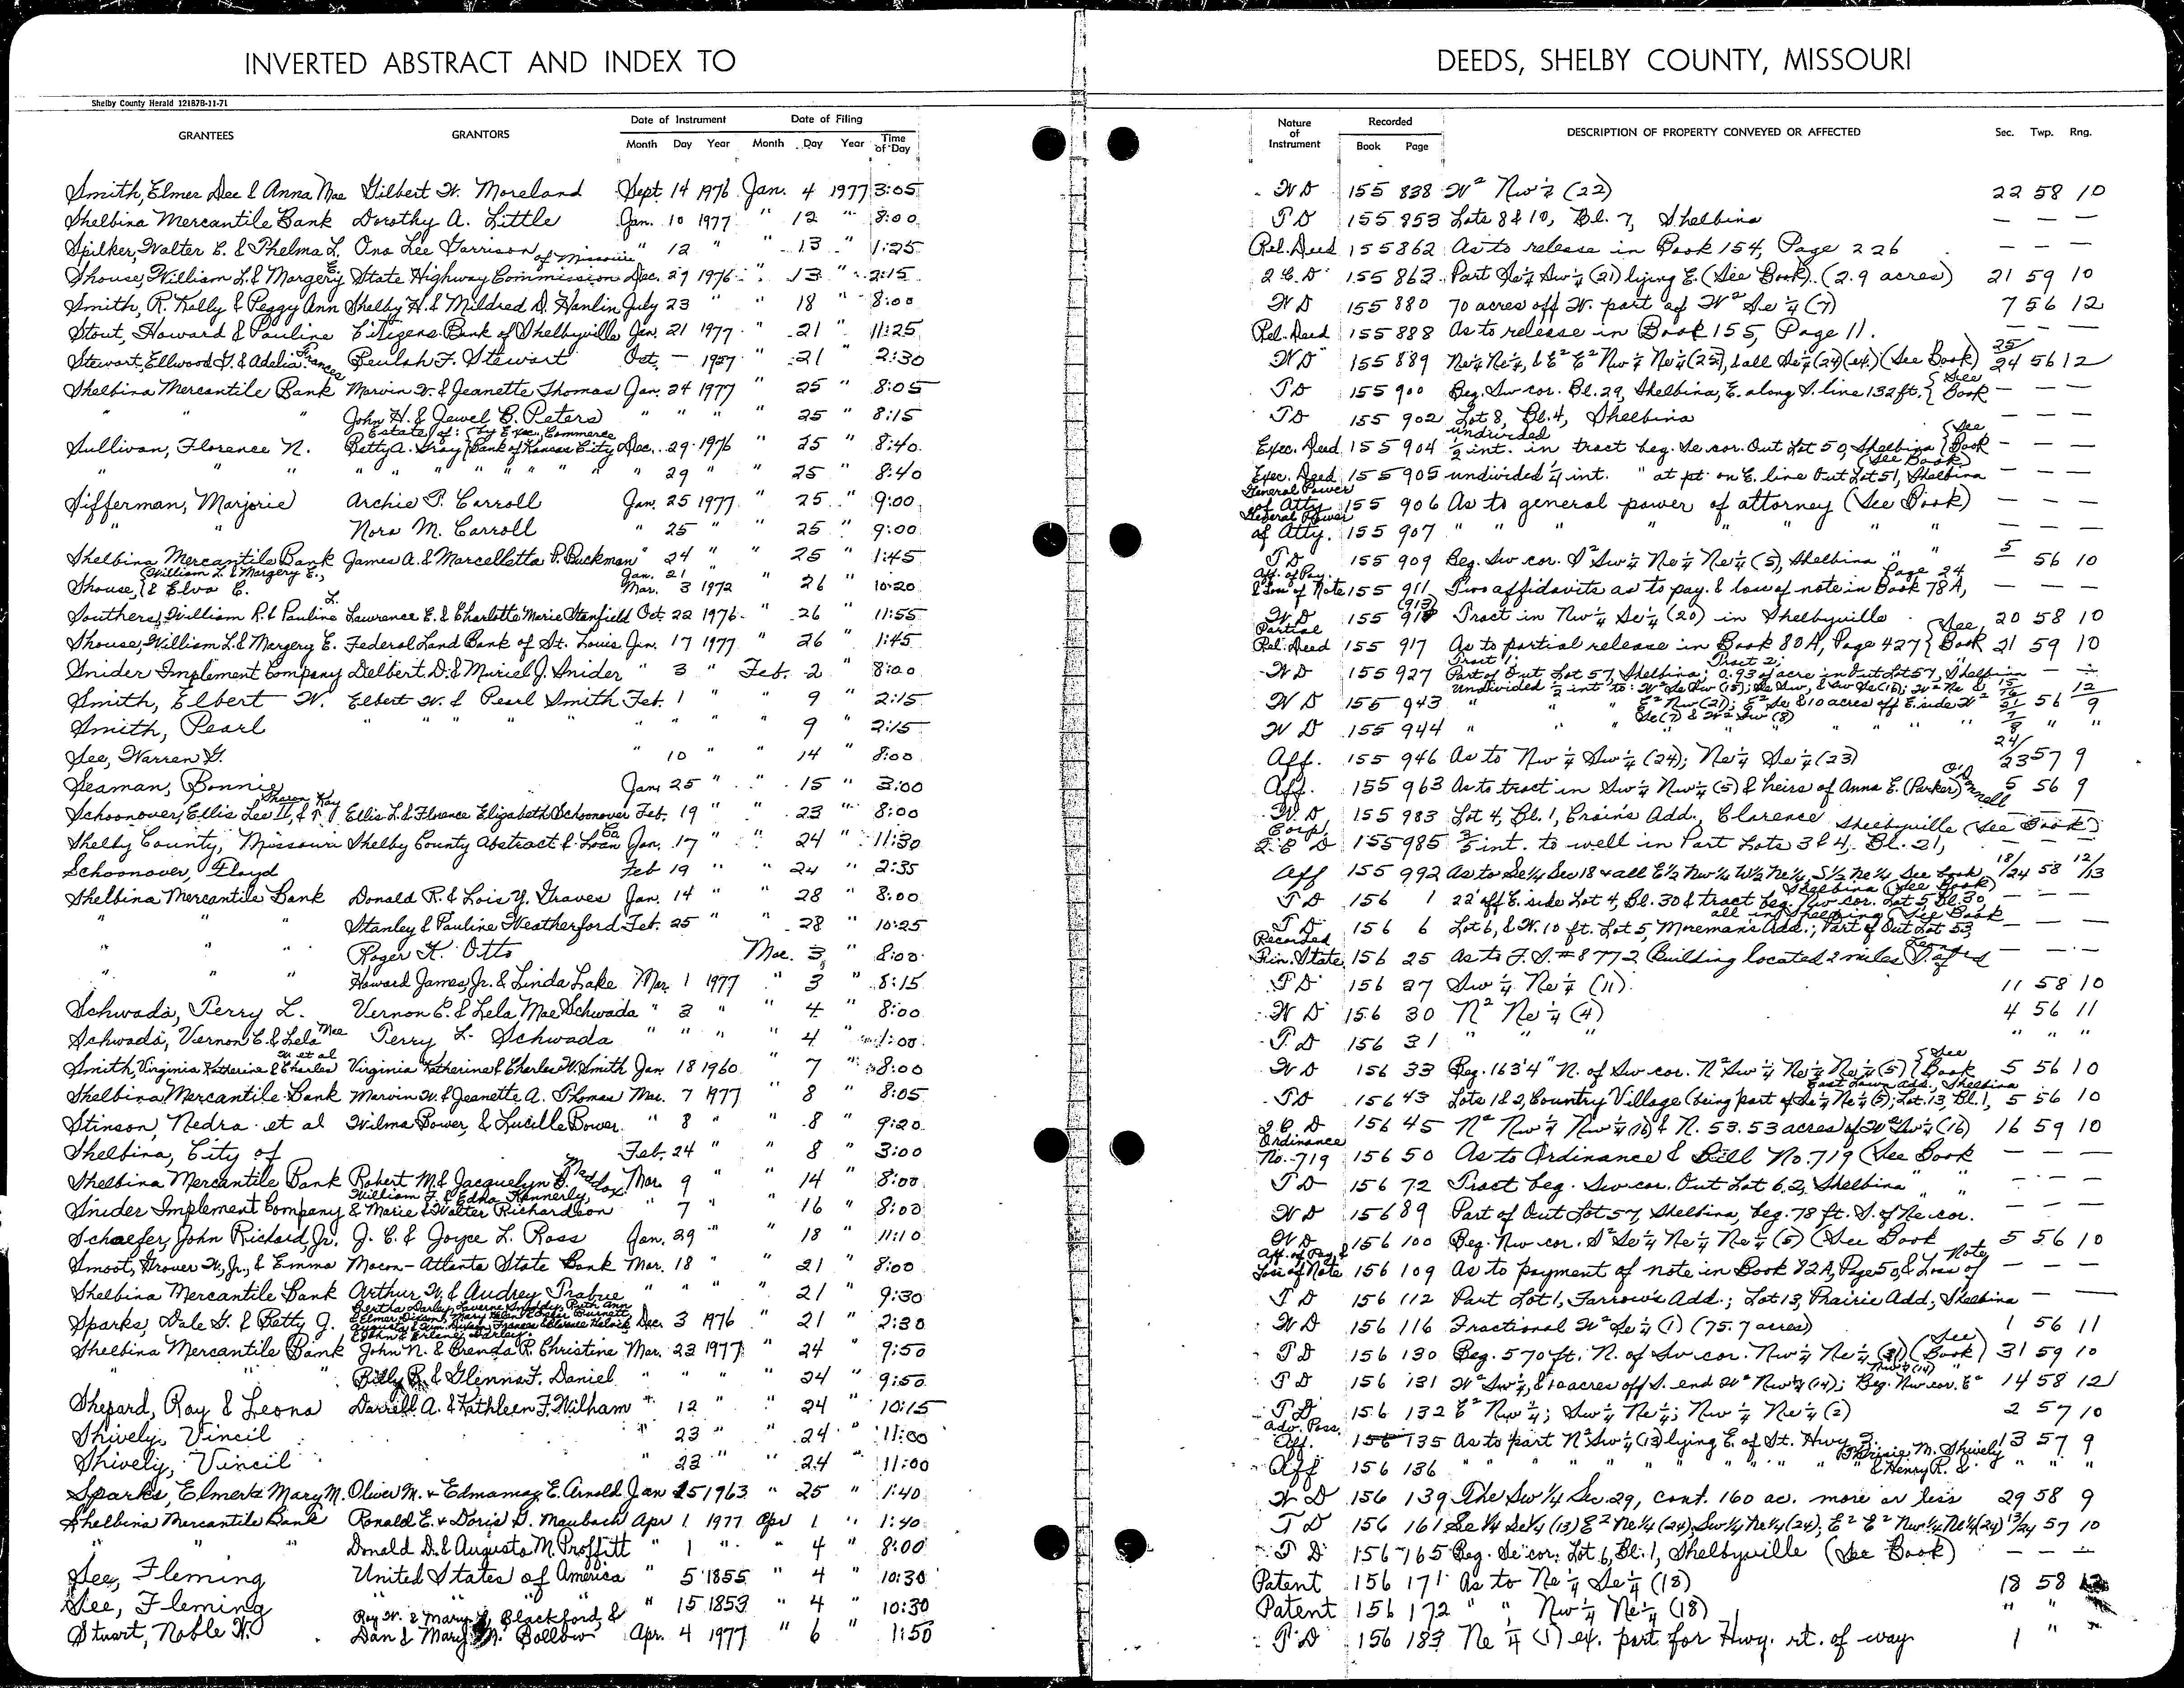 INVERTED ABSTRACT AND INDEX TO
DEEDS, SHELBY COUNTY, MISSOURI
Shelby County Herald 12187B-11-71
GRANTEES GRANTORS Date of Instrument Month Day Year Date of Filing Month Day Year Time of Day Nature of Instrument Recorded Book Page DESCRIPTION OF PROPERTY CONVEYED OR AFFECTED Sec. Twp. Rng.
Smith, Elmer Dee & Anna Mae Gilbert W. Moreland Sept. 14 1976 Jan. 4 1977 3:05 W D 155 838 W² Nw¼ (22) 22 58 10
Shelbina Mercantile Bank Dorothy A. Little Jan. 10 1977 " 12 " 8:00 T D 155 853 Lots 8 & 10, Bl. 7, Shelbina — — —
Spilker, Walter E. & Thelma L. Ona Lee Garrison " 12 " " 13 " 1:25 Rel. Deed 155 862 As to release in Book 154, Page 226 — — —
Shouse, William L. & Margery E. State Highway Commission of Missouri Dec. 29 1976 " 13 " 2:15 Q C D 155 863 Part Se¼ Sw¼ (21) lying E. (See Book) (2.9 acres) 21 59 10
Smith, R. Kelly & Peggy Ann Shelby H. & Mildred D. Hanlin July 23 " " 18 " 8:00 W D 155 880 70 acres off W. part of W² Se¼ (7) 7 56 12
Stout, Howard & Pauline Citizens Bank of Shelbyville Jan. 21 1977 " 21 " 11:25 Rel. Deed 155 888 As to release in Book 155, Page 11. — — —
Stewart, Ellwood G. & Adelia Frances Beulah F. Stewart Oct. — 1957 " 21 " 2:30 W D 155 889 Ne¼ Ne¼, & E² E² Nw¼ Ne¼ (25), & all Se¼ (24) (ex.) (See Book) 25/24 56 12
Shelbina Mercantile Bank Marvin W. & Jeanette Thomas Jan. 24 1977 " 25 " 8:05 T D 155 900 Beg. Sw cor. Bl. 29, Shelbina, E. along S. line 132 ft. {See Book — — —
" " John H. & Jewel B. Peters " " " " 25 " 8:15 T D 155 902 Lot 8, Bl. 4, Shelbina — — —
Sullivan, Florence N. Estate of: Betty A. Gray {by Exec., Commerce Bank of Kansas City Dec. 29 1976 " 25 " 8:40 Exec. Deed 155 904 undivided ½ int. in tract beg. Se cor. Out Lot 50, Shelbina {See Book — — —
" " " " " " 29 " " 25 " 8:40 Exec. Deed 155 905 undivided ¼ int. " at pt. on E. line Out Lot 51, Shelbina (See Book) — — —
Sifferman, Marjorie Archie P. Carroll Jan. 25 1977 " 25 " 9:00 General Power of Atty. 155 906 As to general power of attorney (See Book) — — —
" " Nora M. Carroll " 25 " " 25 " 9:00 General Power of Atty. 155 907 " " " " " " " — — —
Shelbina Mercantile Bank James A. & Marcelletta P. Buckman " 24 " " 25 " 1:45 T D 155 909 Beg. Sw cor. S² Sw¼ Ne¼ Ne¼ (5), Shelbina " " 5 56 10
Shouse, {William L. & Margery E., & Elva C. Jan. 21 Mar. 3 1972 " 26 " 10:20 Aff. of Pay. & Loss of Note 155 911 Two affidavits as to pay. & loss of note in Book 78A, Page 24 — — —
Southers, William R. & Pauline L. Lawrence E. & Charlotte Marie Stanfield Oct. 22 1976 " 26 " 11:55 W D 155 (913) Tract in Nw¼ Se¼ (20) in Shelbyville 20 58 10
Shouse, William L. & Margery E. Federal Land Bank of St. Louis Jan. 17 1977 " 26 " 1:45 Partial Rel. Deed 155 917 As to partial release in Book 80A, Page 427 {See Book 21 59 10
Snider Implement Company Delbert D. & Muriel J. Snider " 3 " Feb. 2 " 8:00 W D 155 927 Tract 1: Part of Out Lot 57, Shelbina; Tract 2: 0.93 of acre in Out Lot 57, Shelbina — —
Smith, Elbert W. Elbert W. & Pearl Smith Feb. 1 " " 9 " 2:15 W D 155 943 Undivided ½ int. to: W² Se Sw (15); Se Sw, & Sw Se (16); W² Ne & E² Nw (21); E² Se & 10 acres off E. side W² Se (7) & W² Sw (8) 56 12/9
Smith, Pearl " " " " " " 9 " 2:15 W D 155 944 " " " " " " "
See, Warren G. " 10 " " 14 " 8:00 Aff. 155 946 As to Nw¼ Sw¼ (24); Ne¼ Se¼ (23) 24/23 57 9
Seaman, Bonnie Jan. 25 " " 15 " 3:00 Aff. 155 963 As to tract in Sw¼ Nw¼ (5) & heirs of Anna E. (Parker) O'Donnell 5 56 9
Schoonover, Ellis Lee II, & Sharon Kay Ellis L. & Florence Elizabeth Schoonover Feb. 19 " " 23 " 8:00 W. D 155 983 Lot 4, Bl. 1, Crain's Add., Clarence — — —
Shelby County, Missouri Shelby County Abstract & Loan Co. Jan. 17 " " 24 " 11:30 Corp. Q C D 155 985 ½ int. to well in Part Lots 3 & 4, Bl. 21, Shelbyville (See Book) — — —
Schoonover, Floyd Feb 19 " " 24 " 2:35 Aff 155 992 As to Se¼ Sec 18 & all E½ Nw¼ W½ Ne¼, S½ Ne¼ See book 18/24 58 12/13
Shelbina Mercantile Bank Donald R. & Lois Y. Graves Jan. 14 " " 28 " 8:00 T D 156 1 22' off E. side Lot 4, Bl. 30 & tract beg. Nw cor. Lot 5, Bl. 30, Shelbina (See Book) — — —
" " " Stanley & Pauline Weatherford Feb. 25 " " 28 " 10:25 T D 156 6 Lot 6, & W. 10 ft. Lot 5, Moreman's Add.; Part of Out Lot 53, all in Shelbina (See Book — — —
" " " Roger K. Otto Mar. 3 " 8:00 Recorded Fin. State. 156 25 As to F.S. #8772 (Building located 2 miles S. of — — —
" " " Howard James, Jr. & Linda Lake Mar. 1 1977 " 3 " 8:15 T D 156 27 Sw¼ Ne¼ (11) 11 58 10
Schwada, Terry L. Vernon E. & Lela Mae Schwada " 3 " " 4 " 8:00 W D 156 30 N² Ne¼ (4) 4 56 11
Schwada, Vernon E. & Lela Mae Terry L. Schwada " " " " 4 " 1:00 T D 156 31 " " " " " "
Smith, Virginia Katherine & Charles W. et al Virginia Katherine & Charles W. Smith Jan 18 1960 " 7 " 8:00 W D 156 33 Beg. 163'4" N. of Sw cor. N² Sw¼ Ne¼ Ne¼ (5) {See Book 5 56 10
Shelbina Mercantile Bank Marvin W. & Jeanette A. Thomas Mar. 7 1977 " 8 " 8:05 T D 156 43 Lots 1 & 2, Country Village (being part of Se¼ Ne¼ (5); Lot 13, Bl. 1, East Lawn Add., Shelbina 5 56 10
Stinson, Nedra et al Wilma Bower, & Lucille Bower " 8 " " 8 " 9:20 Q C D 156 45 N² Nw¼ Nw¼ (16) & N. 53.53 acres of W² Sw¼ (16) 16 59 10
Shelbina, City of Feb. 24 " " 8 " 3:00 Ordinance No. 719 156 50 As to Ordinance & Bill No. 719 (See Book — — —
Shelbina Mercantile Bank Robert M. & Jacquelyn D. Maddox Mar. 9 " " 14 " 8:00 T D 156 72 Tract beg. Sw cor. Out Lot 62, Shelbina " " — — —
Snider Implement Company William F. & Edna Kennerly, & Marie & Walter Richardson " 7 " " 16 " 8:00 W D 156 89 Part of Out Lot 57, Shelbina, beg. 78 ft. S. of Ne cor. — — —
Schaefer, John Richard, Jr. J. C. & Joyce L. Ross Jan. 29 " " 18 " 11:10 W D 156 100 Beg. Nw cor. S² Se¼ Ne¼ Ne¼ (5) (See Book 5 56 10
Smoot, Grover W., Jr., & Emma Macon-Atlanta State Bank Mar. 18 " " 21 " 8:00 Aff. of Pay. & Loss of Note 156 109 As to payment of note in Book 82A, Page 50, & Loss of Note — — —
Shelbina Mercantile Bank Arthur W. & Audrey Trabue " " " " 21 " 9:30 T D 156 112 Part Lot 1, Farrow's Add.; Lot 13, Prairie Add., Shelbina — —
Sparks, Dale G. & Betty J. Dec. 3 1976 " 21 " 2:30 W D 156 116 Fractional W² Se¼ (1) (75.7 acres) 1 56 11
Shelbina Mercantile Bank John N. & Brenda R. Christine Mar. 23 1977 " 24 " 9:50 T D 156 130 Beg. 570 ft. N. of Sw cor. Nw¼ Ne¼ (31) (See Book) 31 59 10
" " " Billy R. & Glenna F. Daniel " " " " 24 " 9:50 T D 156 131 W² Sw¼, & 10 acres off S. end W² Nw¼ (14); Beg. Nw cor. E² Nw¼ (14) " 14 58 12
Shepard, Ray & Leona Darrell A. & Kathleen F. Wilham " 12 " " 24 " 10:15 T D 156 132 E² Nw¼; Sw¼ Ne¼; Nw¼ Ne¼ (2) 2 57 10
Shively, Vincil " 23 " " 24 " 11:00 Adv. Poss. Aff. 156 135 As to part N² Sw¼ (13) lying E. of St. Hwy 3. 13 57 9
Shively, Vincil " 23 " " 24 " 11:00 Aff 156 136 " " " " " " " " " & Henry R. & M. Shively " " "
Sparks, Elmer & Mary M. Oliver M. & Edmamay E. Arnold Jan 15 1963 " 25 " 1:40 W D 156 139 The Sw¼ Sec. 29, cont. 160 ac. more or less 29 58 9
Shelbina Mercantile Bank Ronald E. & Doris G. Maubach Apr 1 1977 Apr 1 " 1:40 T D 156 161 Se¼ Se¼ (13) E² Ne¼ (24), Sw¼ Ne¼ (24), E² E² Nw¼ Ne¼ (24) 13/24 57 10
" " " Donald D. & Augusta M. Proffitt " 1 " " 4 " 8:00 T D 156 165 Beg. Se cor. Lot 6, Bl. 1, Shelbyville (See Book) — — —
See, Fleming United States of America " 5 1855 " 4 " 10:30 Patent 156 171 As to Ne¼ Se¼ (18) 18 58
See, Fleming " " " " 15 1853 " 4 " 10:30 Patent 156 172 " " Nw¼ Ne¼ (18) " "
Stuart, Noble W. Roy W. & Mary L. Blackford, & Dan & Mary M. Bollow Apr. 4 1977 " 6 " 1:50 T D 156 183 Ne¼ (1) ex. part for Hwy. rt. of way 1 " "